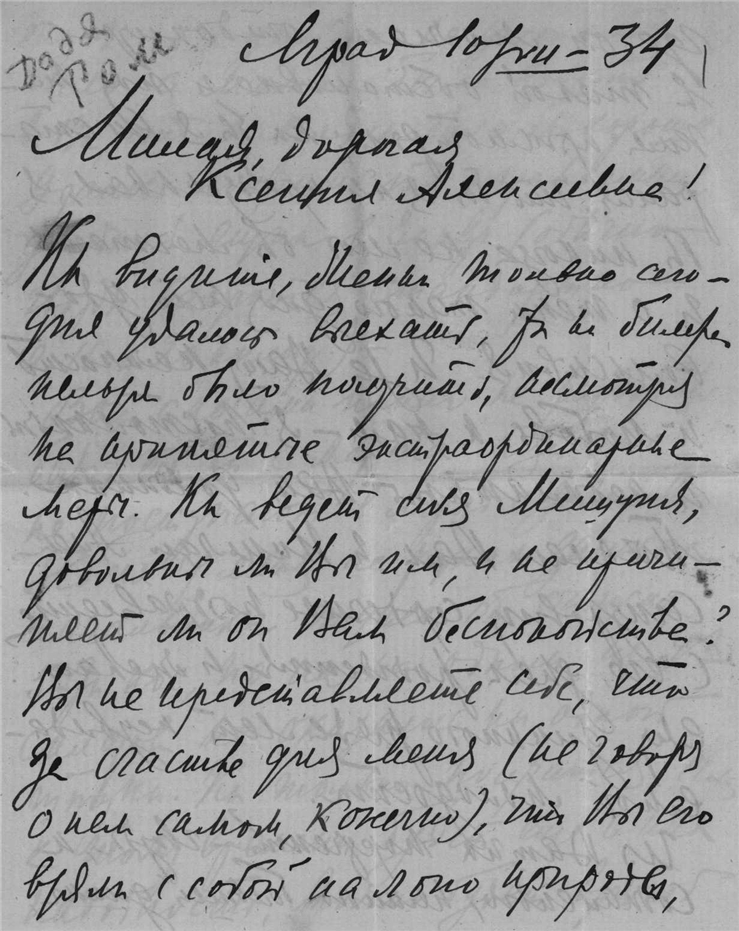 дядя
Том
Лград 10/VII – 34
Милая, дорогая
Ксения Алексеевна!
Кк видите, только сего-
дня удалось выехать, ж. д. билета
нельзя было получить, несмотря
на принятые экстраординарные
меры. Кк ведет себя Мишуня,
довольны ли Вы им, и не причи-
няет ли он Вам беспокойства?
Вы не представляете себе, что
за счастье для меня (не говоря
о нем самом, конечно), что Вы его
взяли с собой на лоно природы,